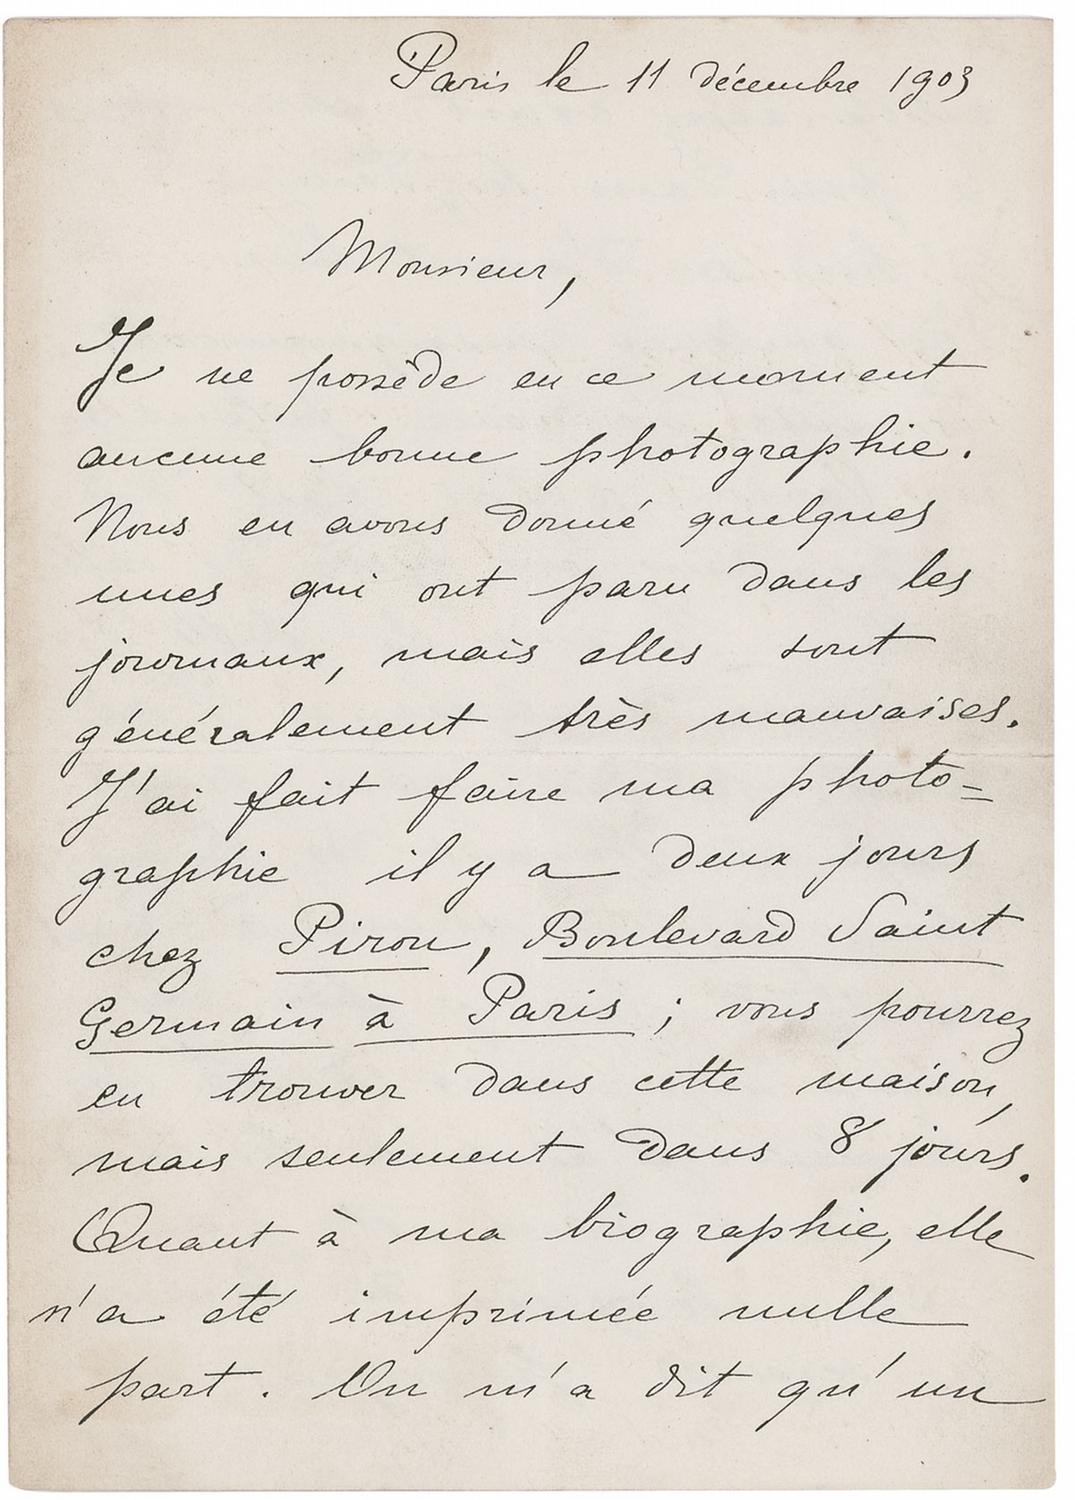 Paris le 11 décembre 1903
Monsieur,
Je ne possède en ce moment
aucune bonne photographie.
Nous en avons donné quelques
unes qui ont paru dans les
journaux, mais elles sont
généralement très mauvaises.
J'ai fait faire ma photo=
graphie il y a deux jours
chez Pirou, Boulevard Saint
Germain à Paris ; vous pourrez
en trouver dans cette maison,
mais seulement dans 8 jours.
Quant à ma biographie, elle
n'a été imprimée nulle
part. On m'a dit qu'un